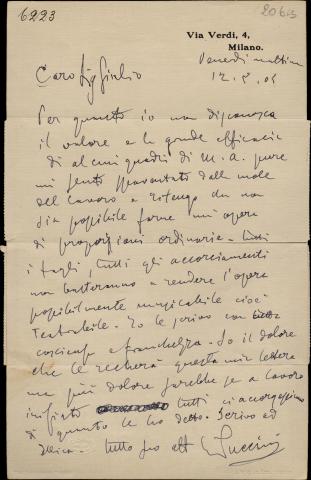 6223
206-3
Via Verdi, 4,
Milano.
Venerdì mattina
12. 5. 05
Caro Sig Giulio
Per quanto io non disconosca
il valore e la grande efficacia
di alcuni quadri di M. A. pure
mi sento spaventato dalla mole
del lavoro e ritengo che non
sia possibile farne un'opera
di proporzioni ordinarie - tutti
i tagli, tutti gli accorciamenti
non basteranno a rendere l'opera
possibilmente musicabile cioè
teatrabile. Io le scrivo con
coscienza e franchezza. So il dolore
che le recherà questa mia lettera
ma più dolore sarebbe se a lavoro
iniziato tutti ci accorgessimo
di quanto le ho detto. Scrivo ad
Illica. tutto suo aff
G Puccini